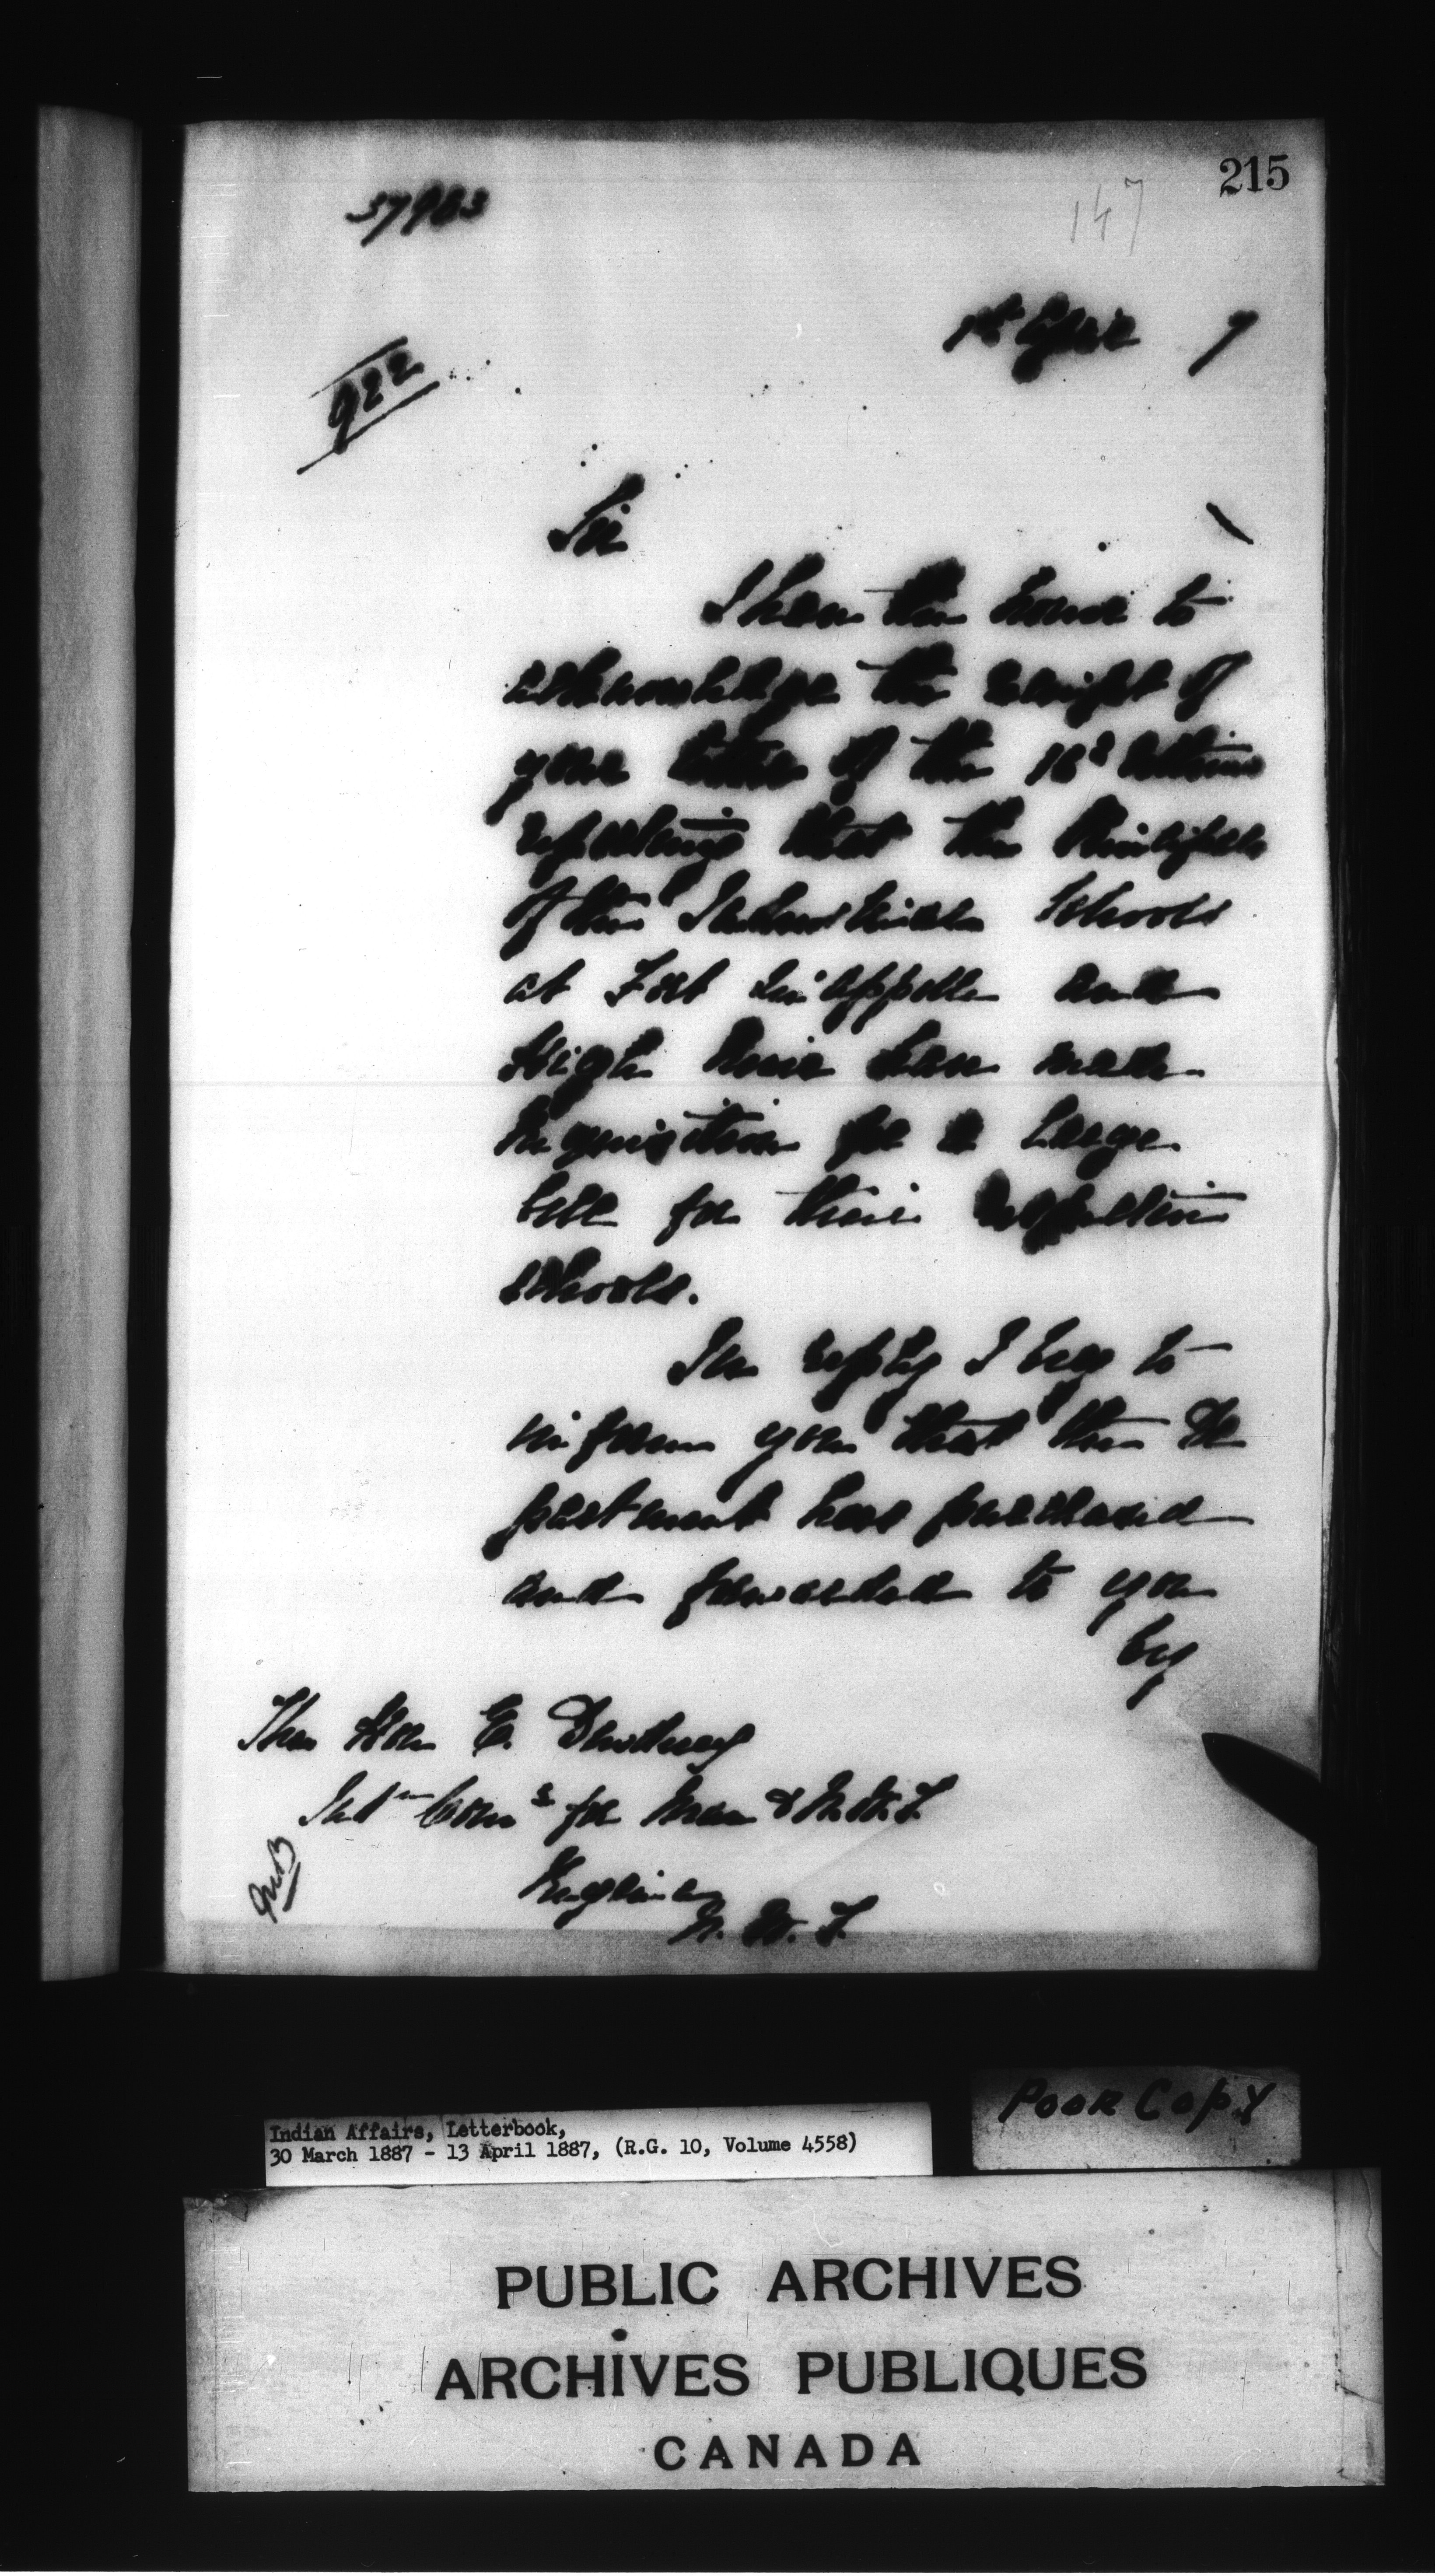 215
147
37983
1st April 7
922
Sir
I have the honor to
acknowledge the receipt of
your letter of the 18th ultimo
reporting that the Principals
of the Industrial Schools
at Fort Qu'appelle and
High River have made
requisition for a large
bell for their respective
schools.
In reply I beg to
inform you that the De
partment has purchased
and forwarded to you
by
The Hon E. Dewdney
Ind'n Com'r for Man & N.W.T.
Regina
N. W. T.
POOR COPY
Indian Affairs, Letterbook,
30 March 1887 - 13 April 1887, (R.G. 10, Volume 4558)
PUBLIC ARCHIVES
ARCHIVES PUBLIQUES
CANADA